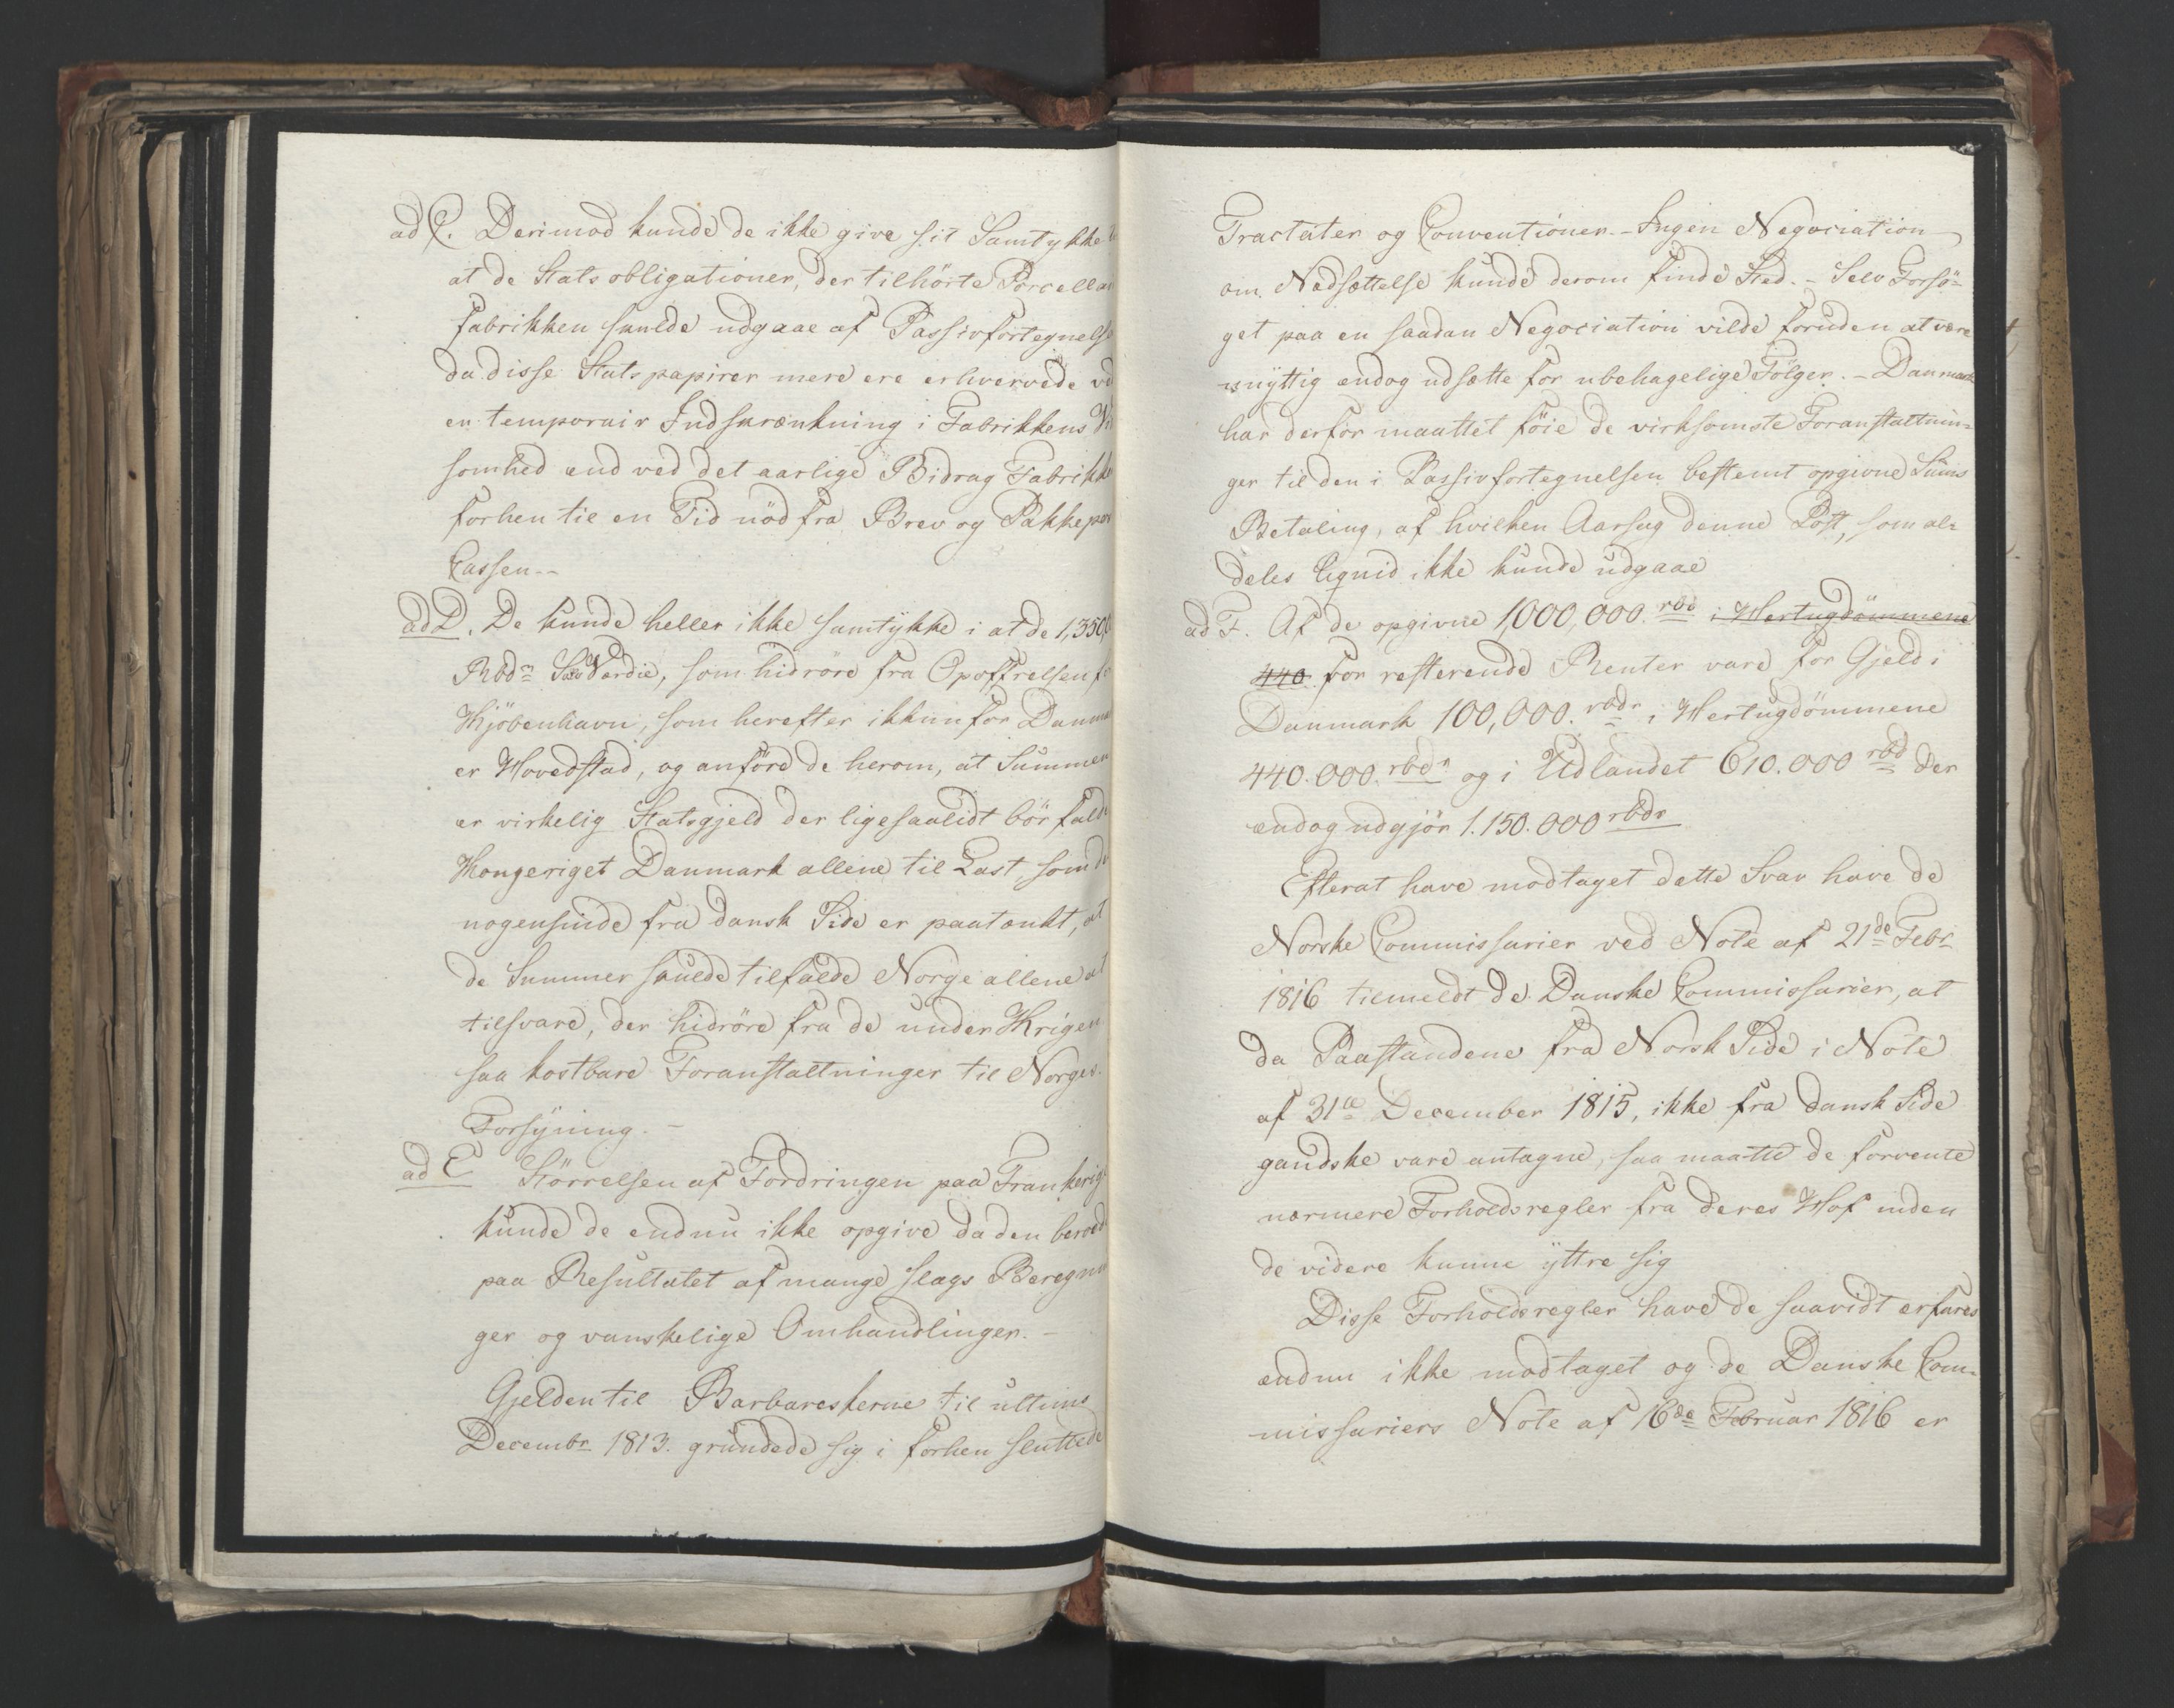 ad C. Derimod kunde de ikke give sit Samtykke
at de Stats obligationer, der tilhörte Porcellan
fabrikken skulde udgaae af Passivfortegnelse
da disse Statspapirer mere ere erhvervede ve
en temporair Indskrænkning i Fabrikkens Vi
somhed end ved det aarlige Bidrag Fabrikke
forhen til en Tid nöd fra Brev og Pakkepos
Cassen. -
ad D. De kunde heller ikke samtykke i at de 1,350,0
Rbdr Værdie, som hidröre fra Opoffrelsen f
Kjöbenhavn, som herefter ikkun for Danma
er Hovedstad, og anföre de herom, at Summen
er virkelig Statsgjeld der ligesaalidt bör falde
Kongeriget Danmark allene til Last, som de
nogensinde fra dansk Side er paatænkt, at
de Summer skulde tilfalde Norge allene at
tilsvare, der hidröre fra de under Krigen
saa kostbare Foranstaltninger til Norges
Forsÿning. -
ad E Störrelsen af Fordringen paa Frankerig
kunde de endnu ikke opgive da den beroed
paa Resultatet af mange slags Beregnin
ger og vanskelige Omhandlinger. -
Gjelden til Barbareskerne til ultimo
Decembr 1813. grundede sig i forhen sluttede
Tractater og Conventioner. - Ingen Negociation
om Nedsættelse kunde derom finde Sted. - Selv Forsö=
get paa en saadan Negociation vilde foruden at være
unyttig endog udsætte for ubehagelige Fölger. - Danmark
har derfor maattet föie de virksomste Foranstaltnin=
ger til den i Passivfortegnelsen bestemt opgivne Sums
Betaling, af hvilken Aarsag denne Post, som al=
deles liqvid ikke kunde udgaae
ad F. Af de opgivne 1,000,000. rbd i Hertugdömmene
440 for resterende Renter vare for Gjeld i
Danmark 100,000. rbdr i Hertugdömmene
440.000. rbdr og i Udlandet 610.000 rbd der
endog udgjör 1.150.000 rbdr
Efterat have modtaget dette Svar have de
Norske Commissarier ved Note af 21de Febr
1816 tilmeldt de Danske Commissarier, at
da Paastandene fra Norsk Side i Note
af 31te December 1815, ikke fra dansk Side
gandske vare antagne, saa maatte de forvente
nærmere Forholdsregler fra deres Hof inden
de videre kunne ÿttre sig
Disse Forholdsregler have de saavidt erfares
endnu ikke modtaget og de Danske Com=
missariers Note af 16de Februar 1816 er